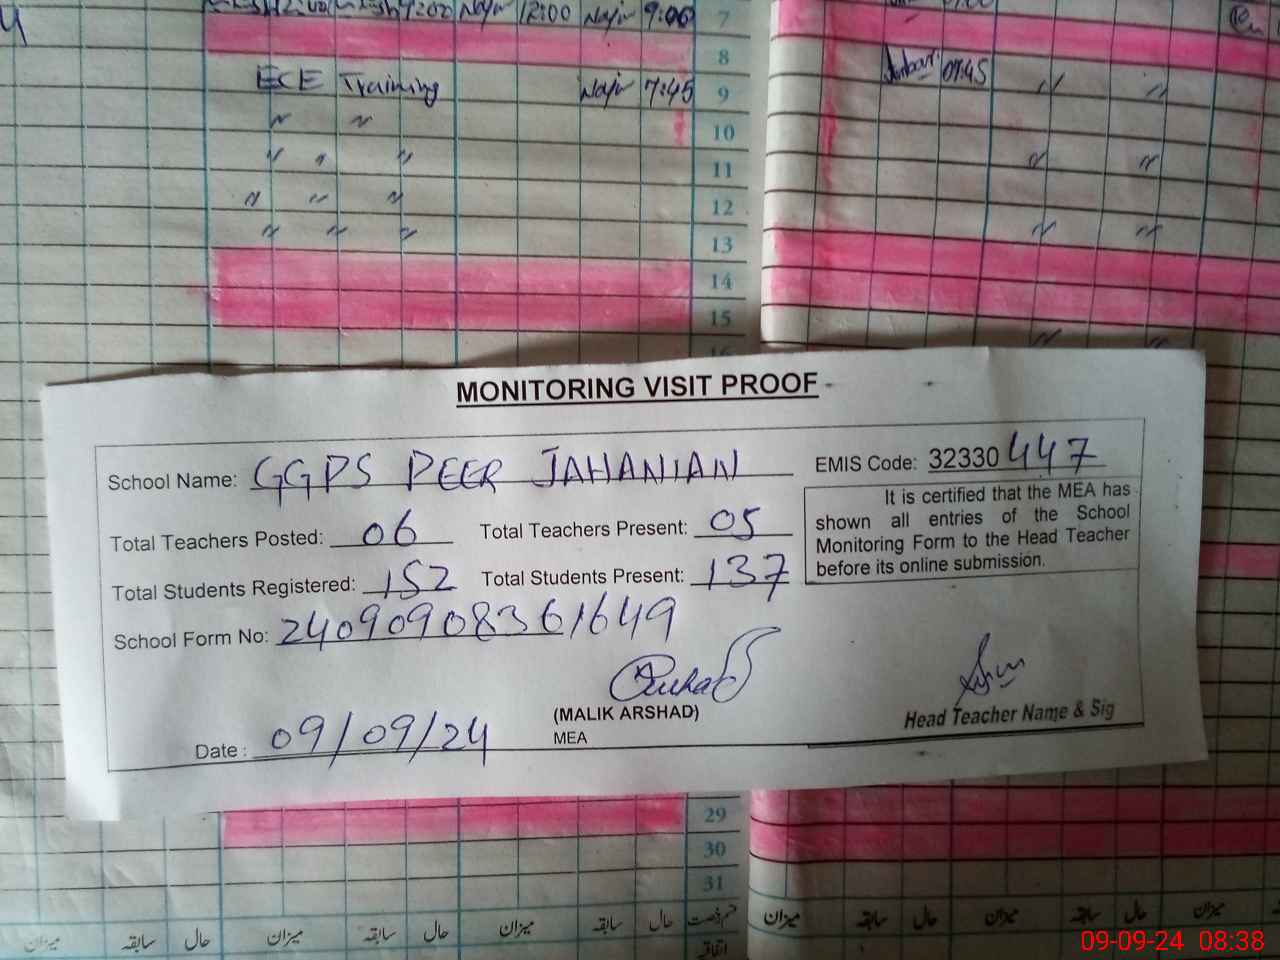 12:00 9:00 7
8
ECE Training 7:45 9
10
11
12
13
14
15
07:45
MONITORING VISIT PROOF
School Name: GGPS PEER JAHANIAN
EMIS Code: 32330447
Total Teachers Posted: 06 Total Teachers Present: 05
Total Students Registered: 152 Total Students Present: 137
School Form No: 24090908361649
It is certified that the MEA has
shown all entries of the School
Monitoring Form to the Head Teacher
before its online submission.
(MALIK ARSHAD)
MEA
Head Teacher Name & Sig
Date: 09/09/24
29
30
31
میزان سابقہ حال میزان سابقہ حال میزان سابقہ حال
میزان سابقہ حال میزان سابقہ حال میزان
09-09-24 08:38